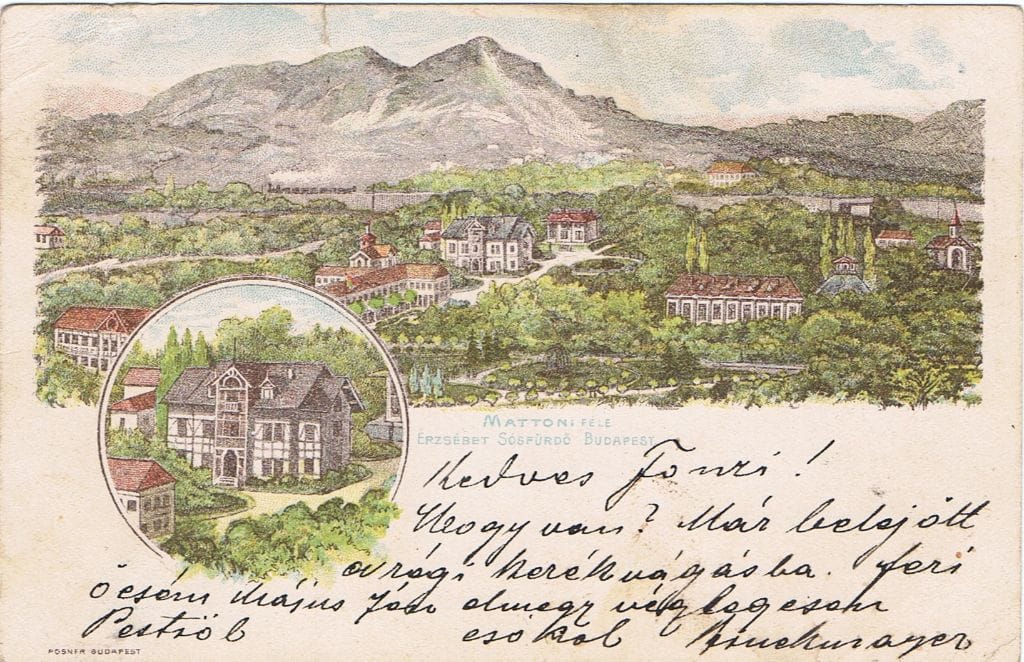 MATTONI FÉLE
ERZSÉBET SÓSFÜRDŐ BUDAPEST
Kedves Fonzi!
Hogy van? Már belejött
a régi kerékvágásba. Feri
öcsém május 7én elmegy véglegesen
Pestről csókol
POSNER BUDAPEST